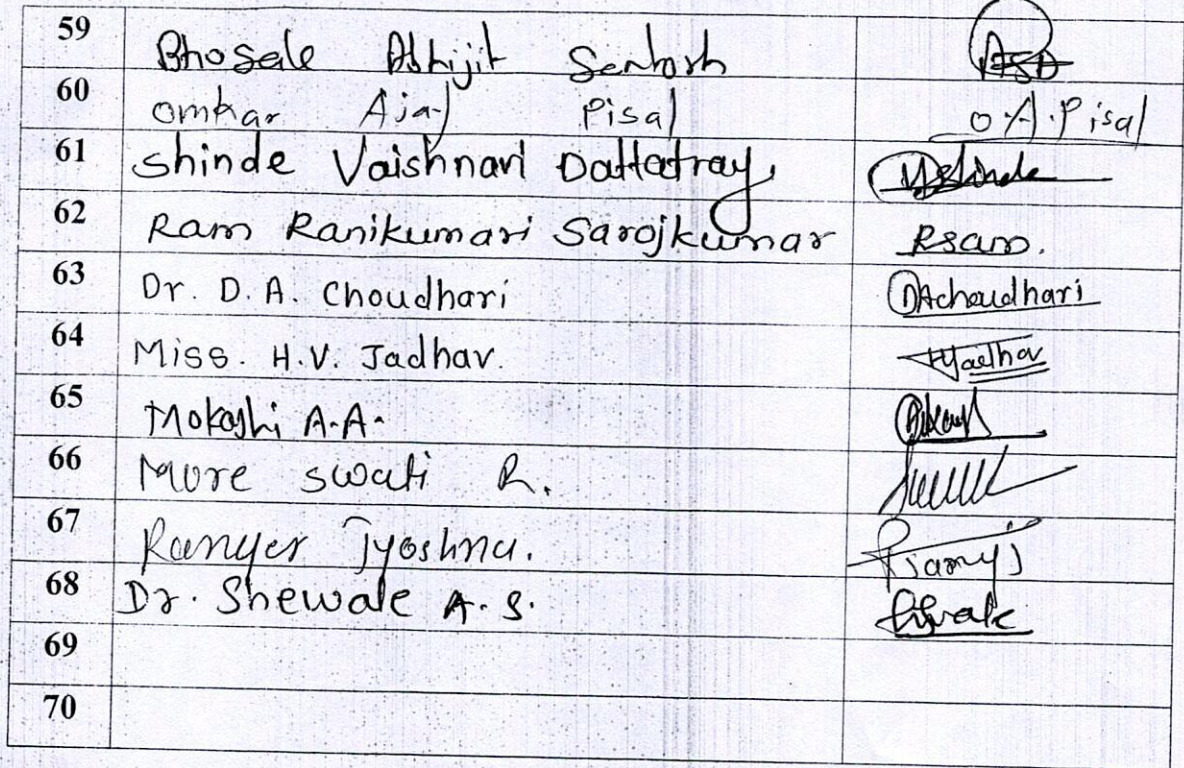 59 Bhosale Abhijit Santosh
60 Omkar Ajay Pisal O.A.Pisal
61 Shinde Vaishnavi Dattatray
62 Ram Ranikumari Sarojkumar Rsam.
63 Dr. D.A. Choudhari DAchoudhari
64 Miss. H.V. Jadhav. HJadhav
65 Mokashi A.A.
66 More Swati R.
67 Jyoshna.
68 Dr. Shewale A.S.
69
70